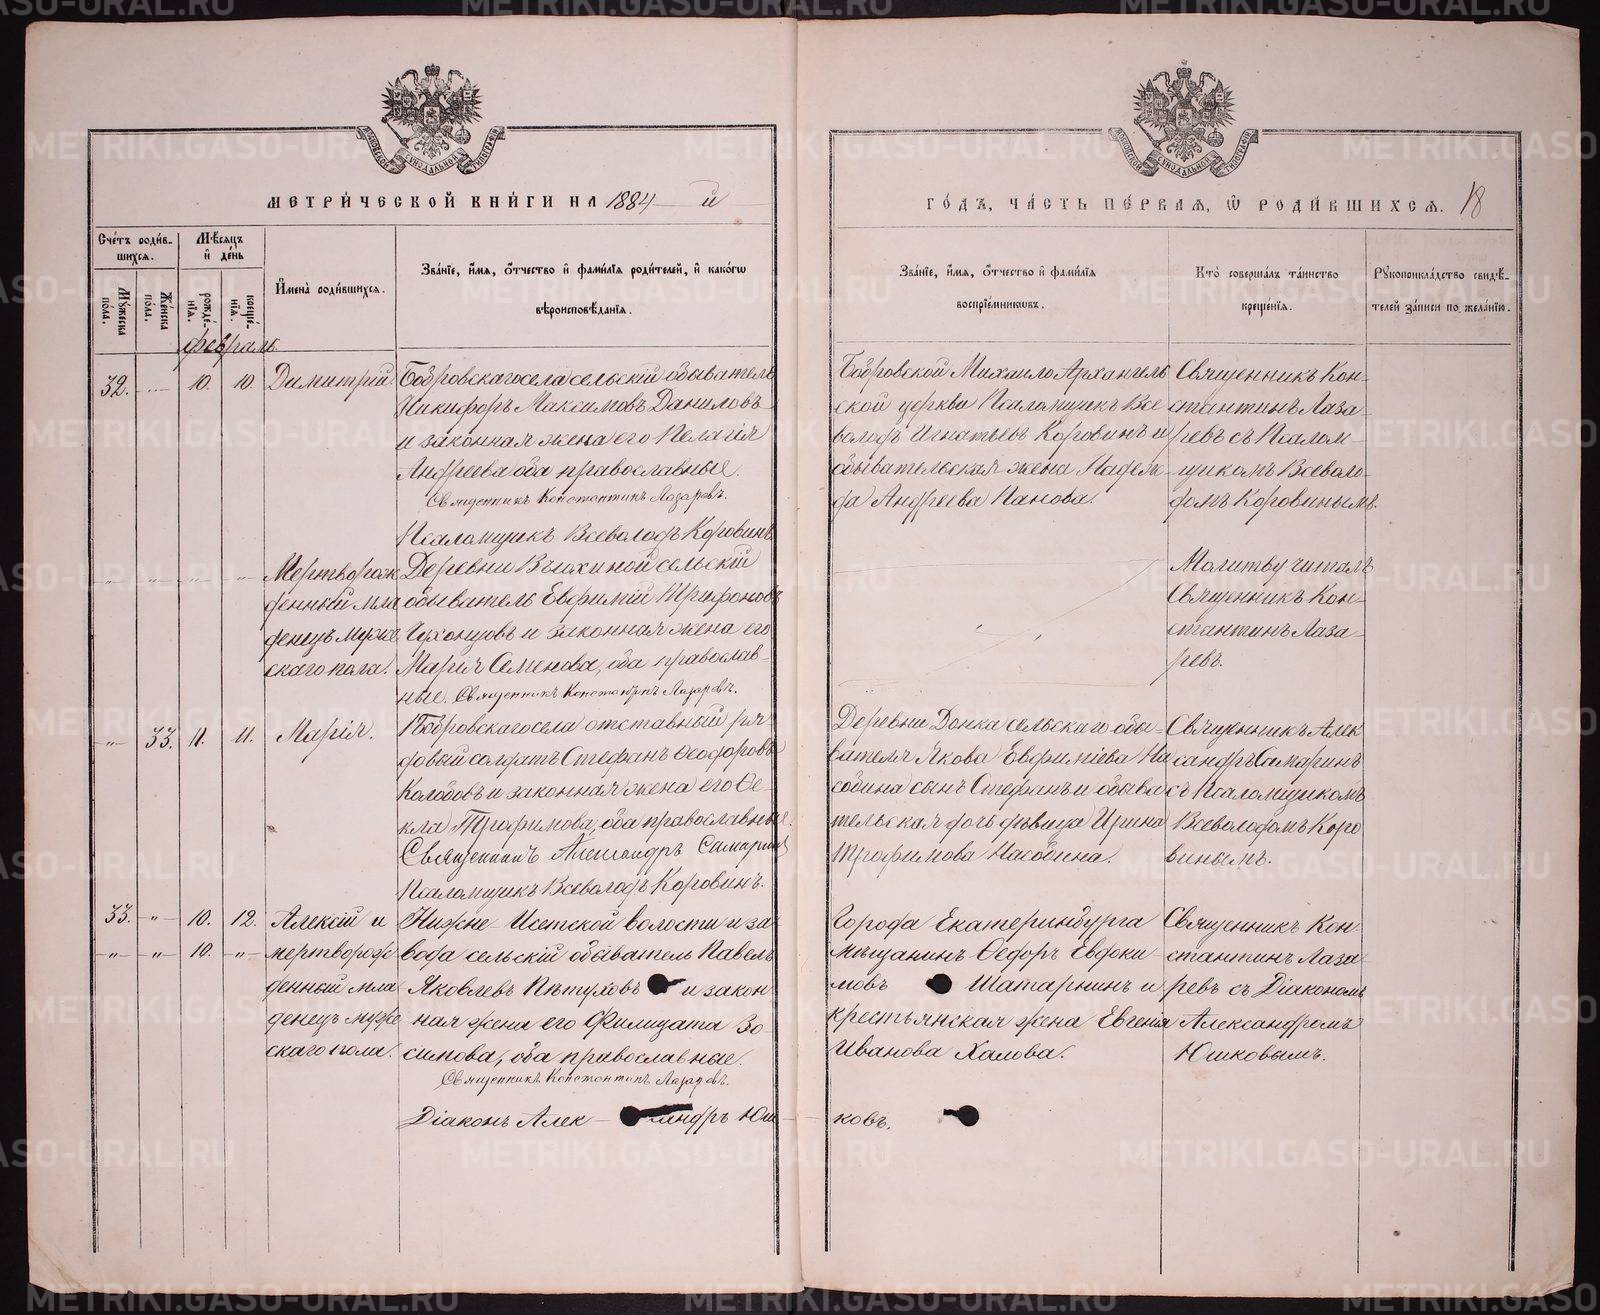 МЕТРИ́ЧЕСКОЙ КНИ́ГИ НА 1884 й
ГО́ДЪ, ЧА́СТЬ ПЕ́РВАЯ, Ѡ РОДИ́ВШИХСЯ. 18
Сче́тъ роди́в-
шихся.
Мѣсяцъ
и де́нь
Имена̀ роди́вшихся.
Зва́нїе, и́мя, о́тчество и фами́лїя роди́телей, и како́гѡ
вѣроисповѣ́данїя.
Зва́нїе, и́мя, о́тчество и фами́лїя
воспрїе́мниковъ.
Кто̀ соверша́лъ та́инство
креще́нїя.
Рꙋкоприкла́дство свидѣ́-
телей за́писи по жела́нїю.
Мꙋ́жеска
по́ла.
Же́нска
по́ла.
рожде́-
нїя.
креще́-
нїя.
февраль
32. 10. 10. Димитрій.
Бобровскаго села сельскій обыватель
Никифоръ Максимовъ Даниловъ
и законная жена его Пелагія
Андреева оба православные.
Священникъ Константинъ Лазаревъ.
Псаломщикъ Всеволодъ Коровинъ.
Бобровской Михаило Архангель
ской церкви Псаломщикъ Все
володъ Игнатьевъ Коровинъ и
обывательская жена Надеж-
да Андреева Панова.
Священникъ Кон-
стантинъ Лаза-
ревъ съ Псалом-
щикомъ Всеволо-
домъ Коровинымъ.
" " " " Мертворож
денный мла
денецъ муже
скаго пола.
Деревни сельскій
обыватель Евфимій Трифоновъ
Чухонцовъ и законная жена его
Марія Семенова, оба православ-
ные. Священникъ Константинъ Лазаревъ.
Молитву читалъ
Священникъ Кон-
стантинъ Лаза-
ревъ.
" 33. 11. 11. Марія.
Бобровскаго села отставный ря
довый солдатъ Стефанъ Ѳеодоровъ
Колобовъ и законная жена его Ѳе-
кла Трофимова, оба православные.
Священникъ Александръ Самаринъ
Псаломщикъ Всеволодъ Коровинъ.
Деревни сельскаго обы-
вателя Якова Евфиміева На
собина сынъ Стефанъ и обыва
тельская дочь дѣвица Ирина
Трофимова Насобина.
Священникъ Алек
сандръ Самаринъ
съ Псаломщикомъ
Всеволодомъ Коро
винымъ.
33. " 10. 12. Алексій и
" " 10. " мертворож
денный мла
денецъ муже
скаго пола.
Нижне-Исетской волости и за
вода сельскій обыватель Павелъ
Яковлевъ Пѣтуховъ и закон
ная жена его Филицата Зо
симова, оба православные.
Священникъ Константинъ Лазаревъ.
Діаконъ Алек- сандръ Юш-
ковъ.
Города Екатеринбурга
мѣщанинъ Ѳедоръ Евдоки-
мовъ и
крестьянская жена Евгенія
Иванова Халова.
Священникъ Кон
стантинъ Лаза
ревъ съ Діакономъ
Александромъ
Юшковымъ.
METRIKI.GASO-URAL.RU